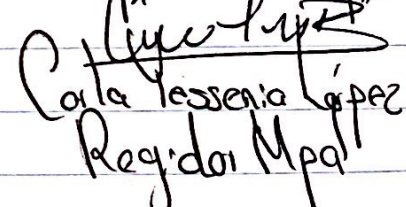 Carla Yessenia López
Regidor Mpal